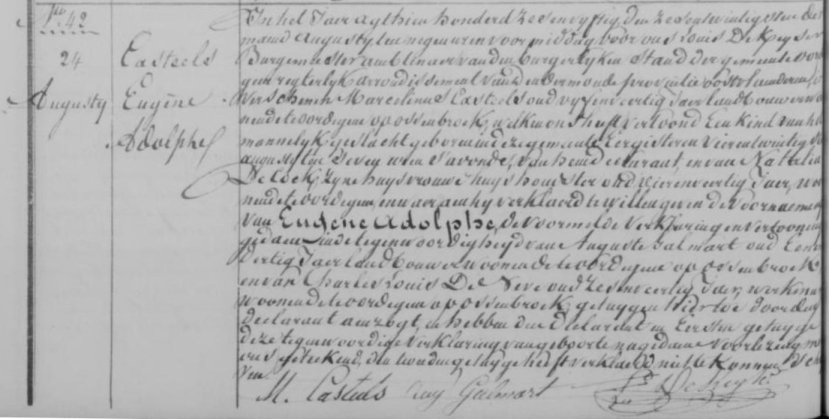 N.º 42
24
Augusty
Casteels
Eugène
Adolphe
In het Jaer Agthien honderd zesenvyftig, den zesentwintigsten der
maend Augusty ten negen uren voormiddag, voor ons Louis De Keyser
Burgemeester ambtenaer van den burgerlyken Stand der gemeente
geregterlyk arrondissement van Dendermonde provintie oostvlaenderen,
Verschenen Marcelinus Casteels oud vyfenveertig Jaer landbouwer
woonende te oordegem op ossenbroek; welkin ons heeft vertoond Een kind van het
mannelyk geslacht geboren in deze gemeente Eergisteren vierentwintig
augusty ten zeven uren s'avonds, van hem declarant, en van Nathalia
De Cock, zyne huysvrouwe huyshoudster oud vierenveertig Jaer,
woonende te oordegem, en waer aen hy verklaerd te willen geven de voornaemen
van Eugène Adolphe, de voormelde verklaring en vertooning
gedaen in de tegenwoordigheyd van Auguste Galmart oud Een
veertig Jaer landbouwer woonende te oordegem op ossenbroek
en van Charles Louis De Neve oud zesenveertig Jaer, werkman
woonende te oordegem op ossenbroek; getuygen hiertoe door den
declarant aenzogt, en hebben den declarant en Eersten getuyge
deze tegenwoordige verklaring van geboorte nagedaene voorlezing met
ons geteekend, den tweeden getuyge heeft verklaerd niet te konnen schry
ven
M. Casteels Aug Galmart De Keyser